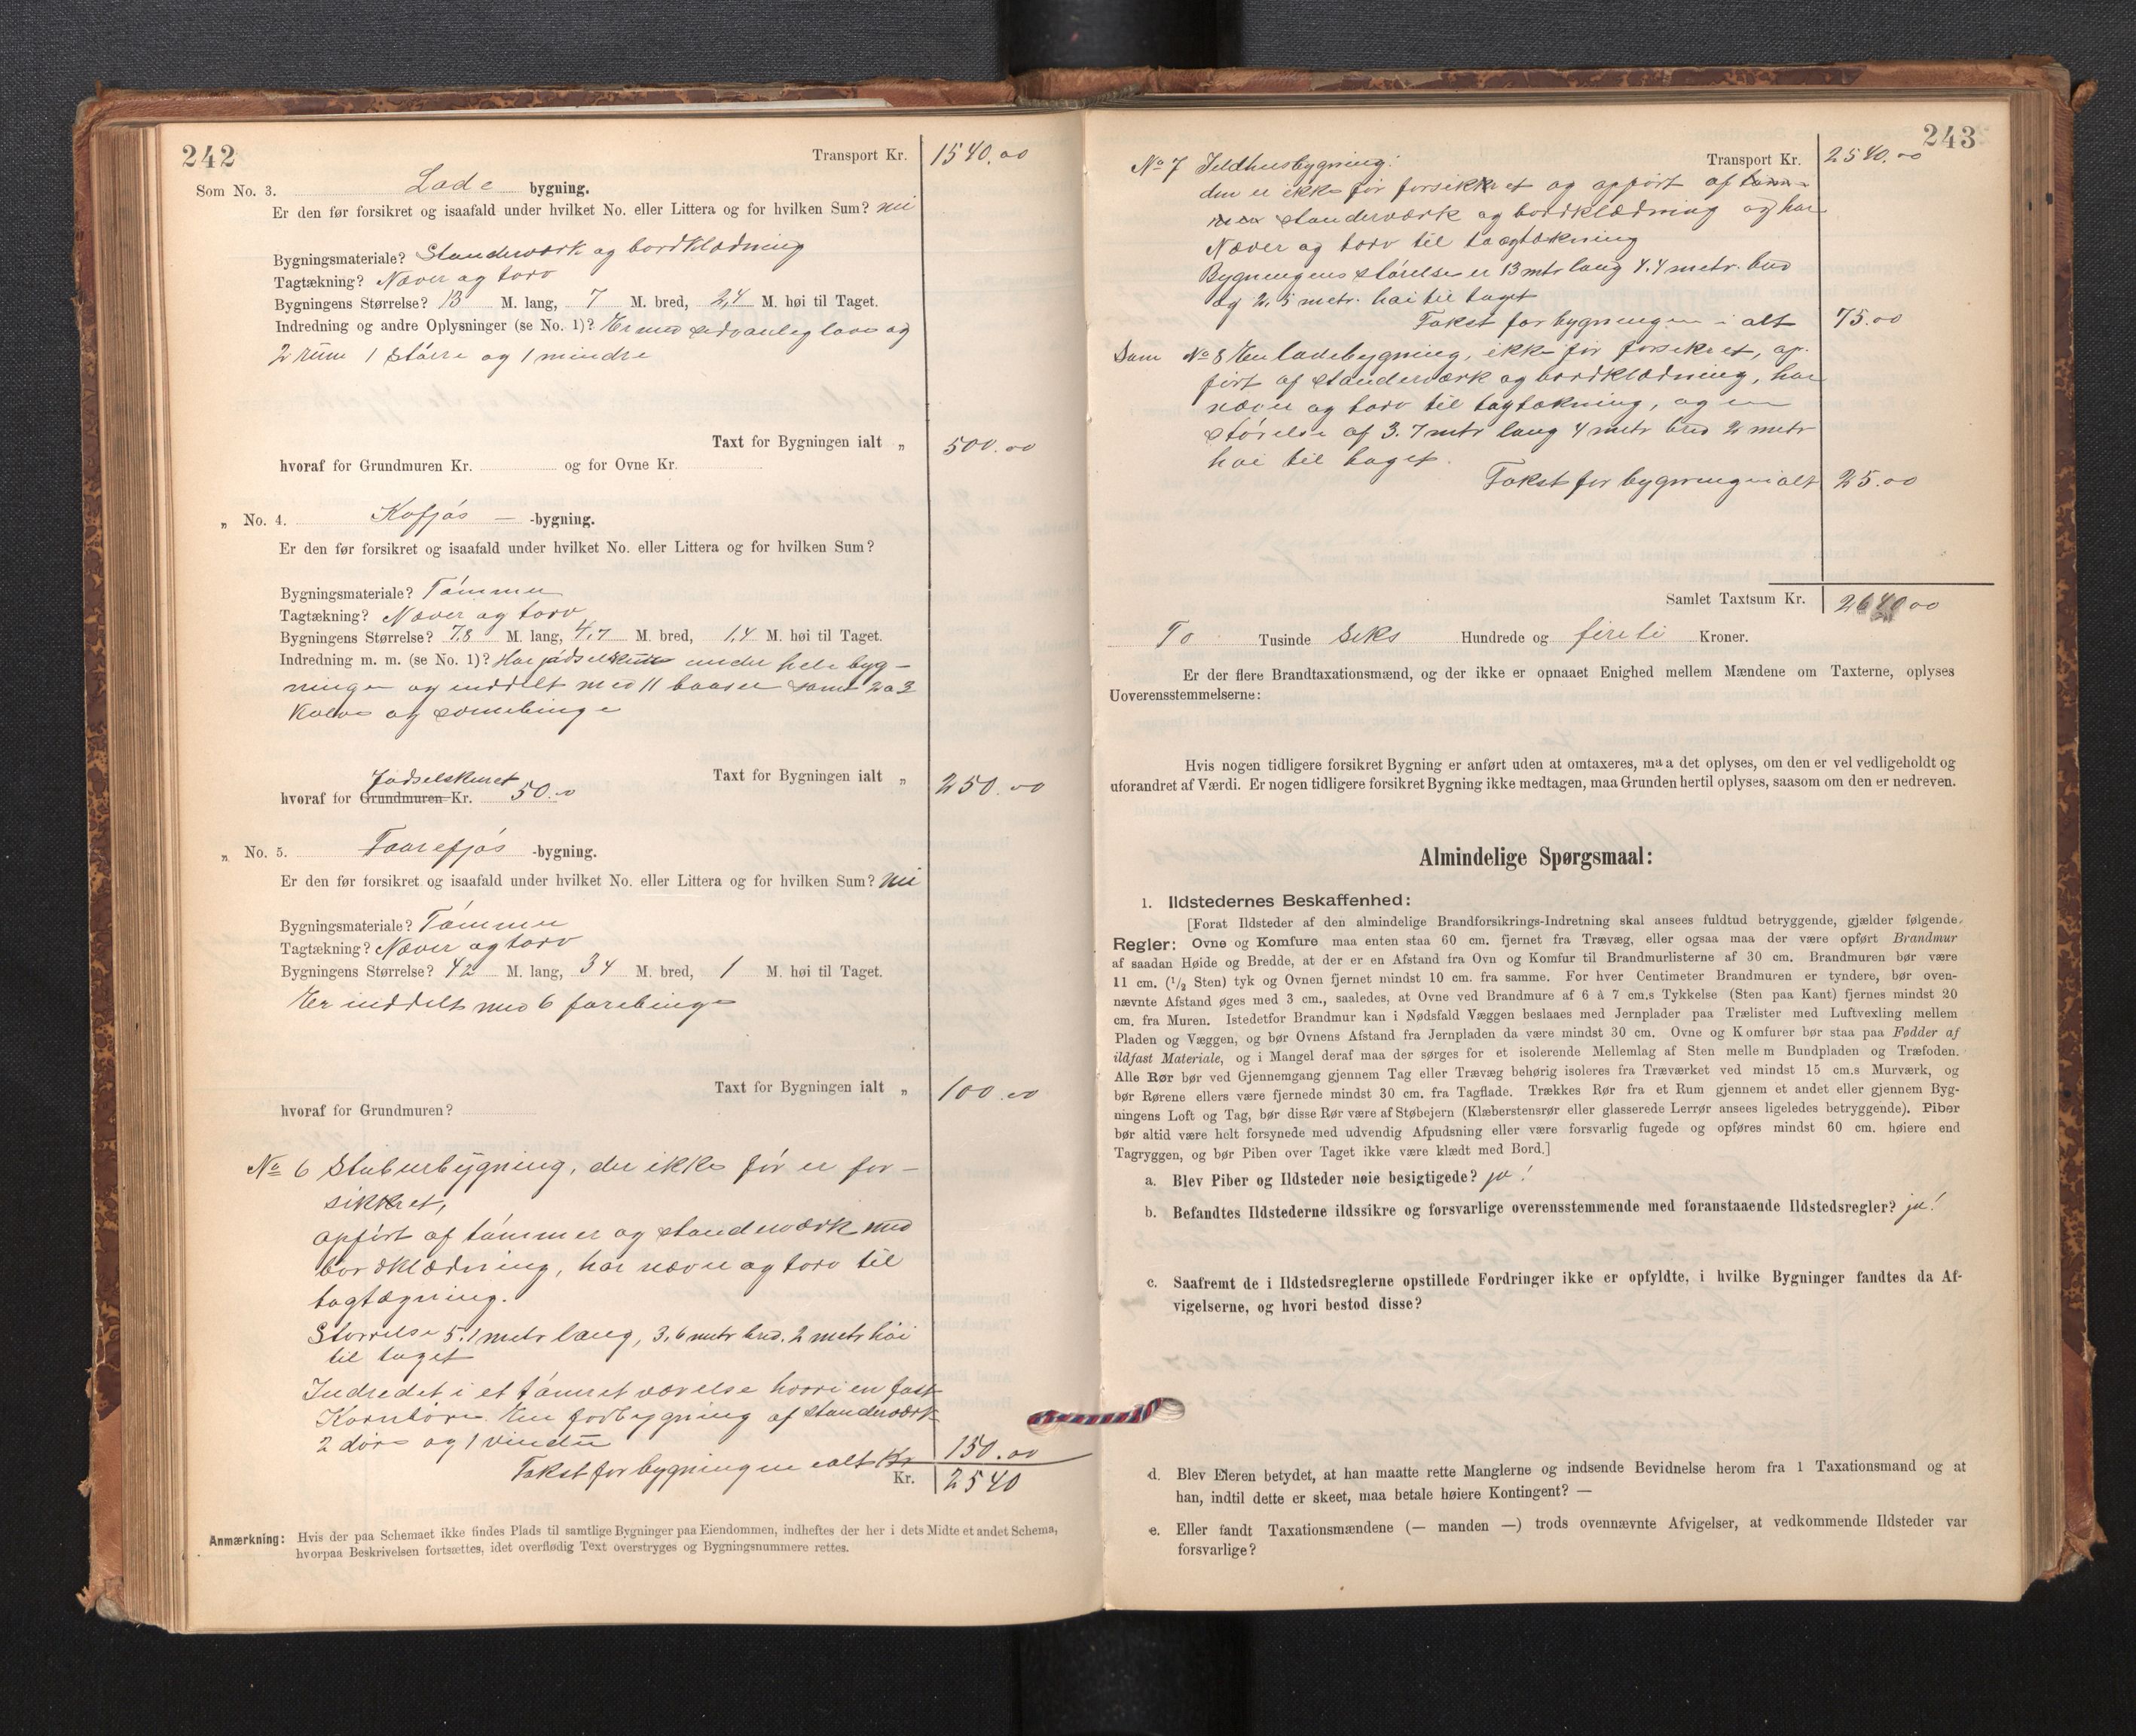 242
Transport Kr. 1540.00
Som No. 3. Lade bygning.
Er den før forsikret og isaafald under hvilket No. eller Littera og for hvilken Sum? nei
Bygningsmateriale? Standerværk og bordklædning
Tagtækning? Næver og torv
Bygningens Størrelse? 13 M. lang, 7 M. bred, 2,4 M. høi til Taget.
Indredning og andre Oplysninger (se No. 1)? Er med sedvanleg lave og
2 rum 1 større og 1 mindre
Taxt for Bygningen ialt „ 500.00
hvoraf for Grundmuren Kr. og for Ovne Kr.
„ No. 4. Kofjøs -bygning.
Er den før forsikret og isaafald under hvilket No. eller Littera og for hvilken Sum?
Bygningsmateriale? Tømmer
Tagtækning? Næver og torv
Bygningens Størrelse? 7,8 M. lang, 4,7 M. bred, 1,4 M. høi til Taget.
Indredning m. m. (se No. 1)? Har jødselskur under hele byg-
ningen og inddelt med 11 baaser samt 2 a 3
Kalve og
Jødselskuret
Taxt for Bygningen ialt „ 250.00
hvoraf for Grundmuren Kr. 50.00
„ No. 5. Faarefjøs -bygning.
Er den før forsikret og isaafald under hvilket No. eller Littera og for hvilken Sum? nei
Bygningsmateriale? Tømmer
Tagtækning? Næver og torv
Bygningens Størrelse? 42 M. lang, 34 M. bred, 1 M. høi til Taget.
Er inddelt med 6 farebinge
Taxt for Bygningen ialt „ 100.00
hvoraf for Grundmuren?
No 6 Stabursbygning, der ikke før er for-
sikkret,
opført af tømmer og standerværk med
bordklædning, har næver og torv til
tagtægning.
Storrelse 5.1 metr lang, 3,6 metr bred. 2 metr høi
til taget
Indredet i et tømret værelse hvori en fast
Kornbøre. En forbygning af standerværk
2 døre og 1 vindu
Takst for bygningen ialt Kr 150.00
Kr. 2540
Anmærkning: Hvis der paa Schemaet ikke findes Plads til samtlige Bygninger paa Eiendommen, indheftes der her i dets Midte et andet Schema,
hvorpaa Beskrivelsen fortsættes, idet overflødig Text overstryges og Bygningsnummere rettes.
243
Transport Kr. 2540.00
No 7 Ildhusbygning:
den er ikke før forsikkret og opført af
standerværk og bordklædning og har
Næver og torv til taegtækning
Bygningens størelse er 13 mtr lang 4.4 metr. bred
og 2,5 metr. høi til taget
Takst for bygningen i alt 75.00
Som No 8 En ladebygning, ikke før forsikret, op-
ført af standerværk og bordklædning, har
næver og torv til tagtækning, og en
størelse af 3.7 mtr lang 4 metr bred 2 metr
høi til taget.
Takst for bygningen ialt 25.00
Samlet Taxtsum Kr. 2640 00
To Tusinde seks Hundrede og fireti Kroner.
Er der flere Brandtaxationsmænd, og der ikke er opnaaet Enighed mellem Mændene om Taxterne, oplyses
Uoverensstemmelserne:
Hvis nogen tidligere forsikret Bygning er anført uden at omtaxeres, maa det oplyses, om den er vel vedligeholdt og
uforandret af Værdi. Er nogen tidligere forsikret Bygning ikke medtagen, maa Grunden hertil oplyses, saasom om den er nedreven.
Almindelige Spørgsmaal:
1. Ildstedernes Beskaffenhed:
[Forat Ildsteder af den almindelige Brandforsikrings-Indretning skal ansees fuldtud betryggende, gjælder følgende
Regler: Ovne og Komfure maa enten staa 60 cm. fjernet fra Trævæg, eller ogsaa maa der være opført Brandmur
af saadan Høide og Bredde, at der er en Afstand fra Ovn og Komfur til Brandmurlisterne af 30 cm. Brandmuren bør være
11 cm. (1/2 Sten) tyk og Ovnen fjernet mindst 10 cm. fra samme. For hver Centimeter Brandmuren er tyndere, bør oven-
nævnte Afstand øges med 3 cm., saaledes, at Ovne ved Brandmure af 6 à 7 cm.s Tykkelse (Sten paa Kant) fjernes mindst 20
cm. fra Muren. Istedetfor Brandmur kan i Nødsfald Væggen beslaaes med Jernplader paa Trælister med Luftvexling mellem
Pladen og Væggen, og bør Ovnens Afstand fra Jernpladen da være mindst 30 cm. Ovne og Komfurer bør staa paa Fødder af
ildfast Materiale, og i Mangel deraf maa der sørges for et isolerende Mellemlag af Sten mellem Bundpladen og Træfoden.
Alle Rør bør ved Gjennemgang gjennem Tag eller Trævæg behørig isoleres fra Træværket ved mindst 15 cm.s Murværk, og
bør Rørene ellers være fjernede mindst 30 cm. fra Tagflade. Trækkes Rør fra et Rum gjennem et andet eller gjennem Byg-
ningens Loft og Tag, bør disse Rør være af Støbejern (Klæberstensrør eller glasserede Lerrør ansees ligeledes betryggende). Piber
bør altid være helt forsynede med udvendig Afpudsning eller være forsvarlig fugede og opføres mindst 60 cm. høiere end
Tagryggen, og bør Piben over Taget ikke være klædt med Bord.]
a. Blev Piber og Ildsteder nøie besigtigede? ja!
b. Befandtes Ildstederne ildssikre og forsvarlige overensstemmende med foranstaaende Ildstedsregler? ja!
c. Saafremt de i Ildstedsreglerne opstillede Fordringer ikke er opfyldte, i hvilke Bygninger fandtes da Af-
vigelserne, og hvori bestod disse?
d. Blev Eieren betydet, at han maatte rette Manglerne og indsende Bevidnelse herom fra 1 Taxationsmand og at
han, indtil dette er skeet, maa betale høiere Kontingent? —
e. Eller fandt Taxationsmændene (— manden —) trods ovennævnte Afvigelser, at vedkommende Ildsteder var
forsvarlige?